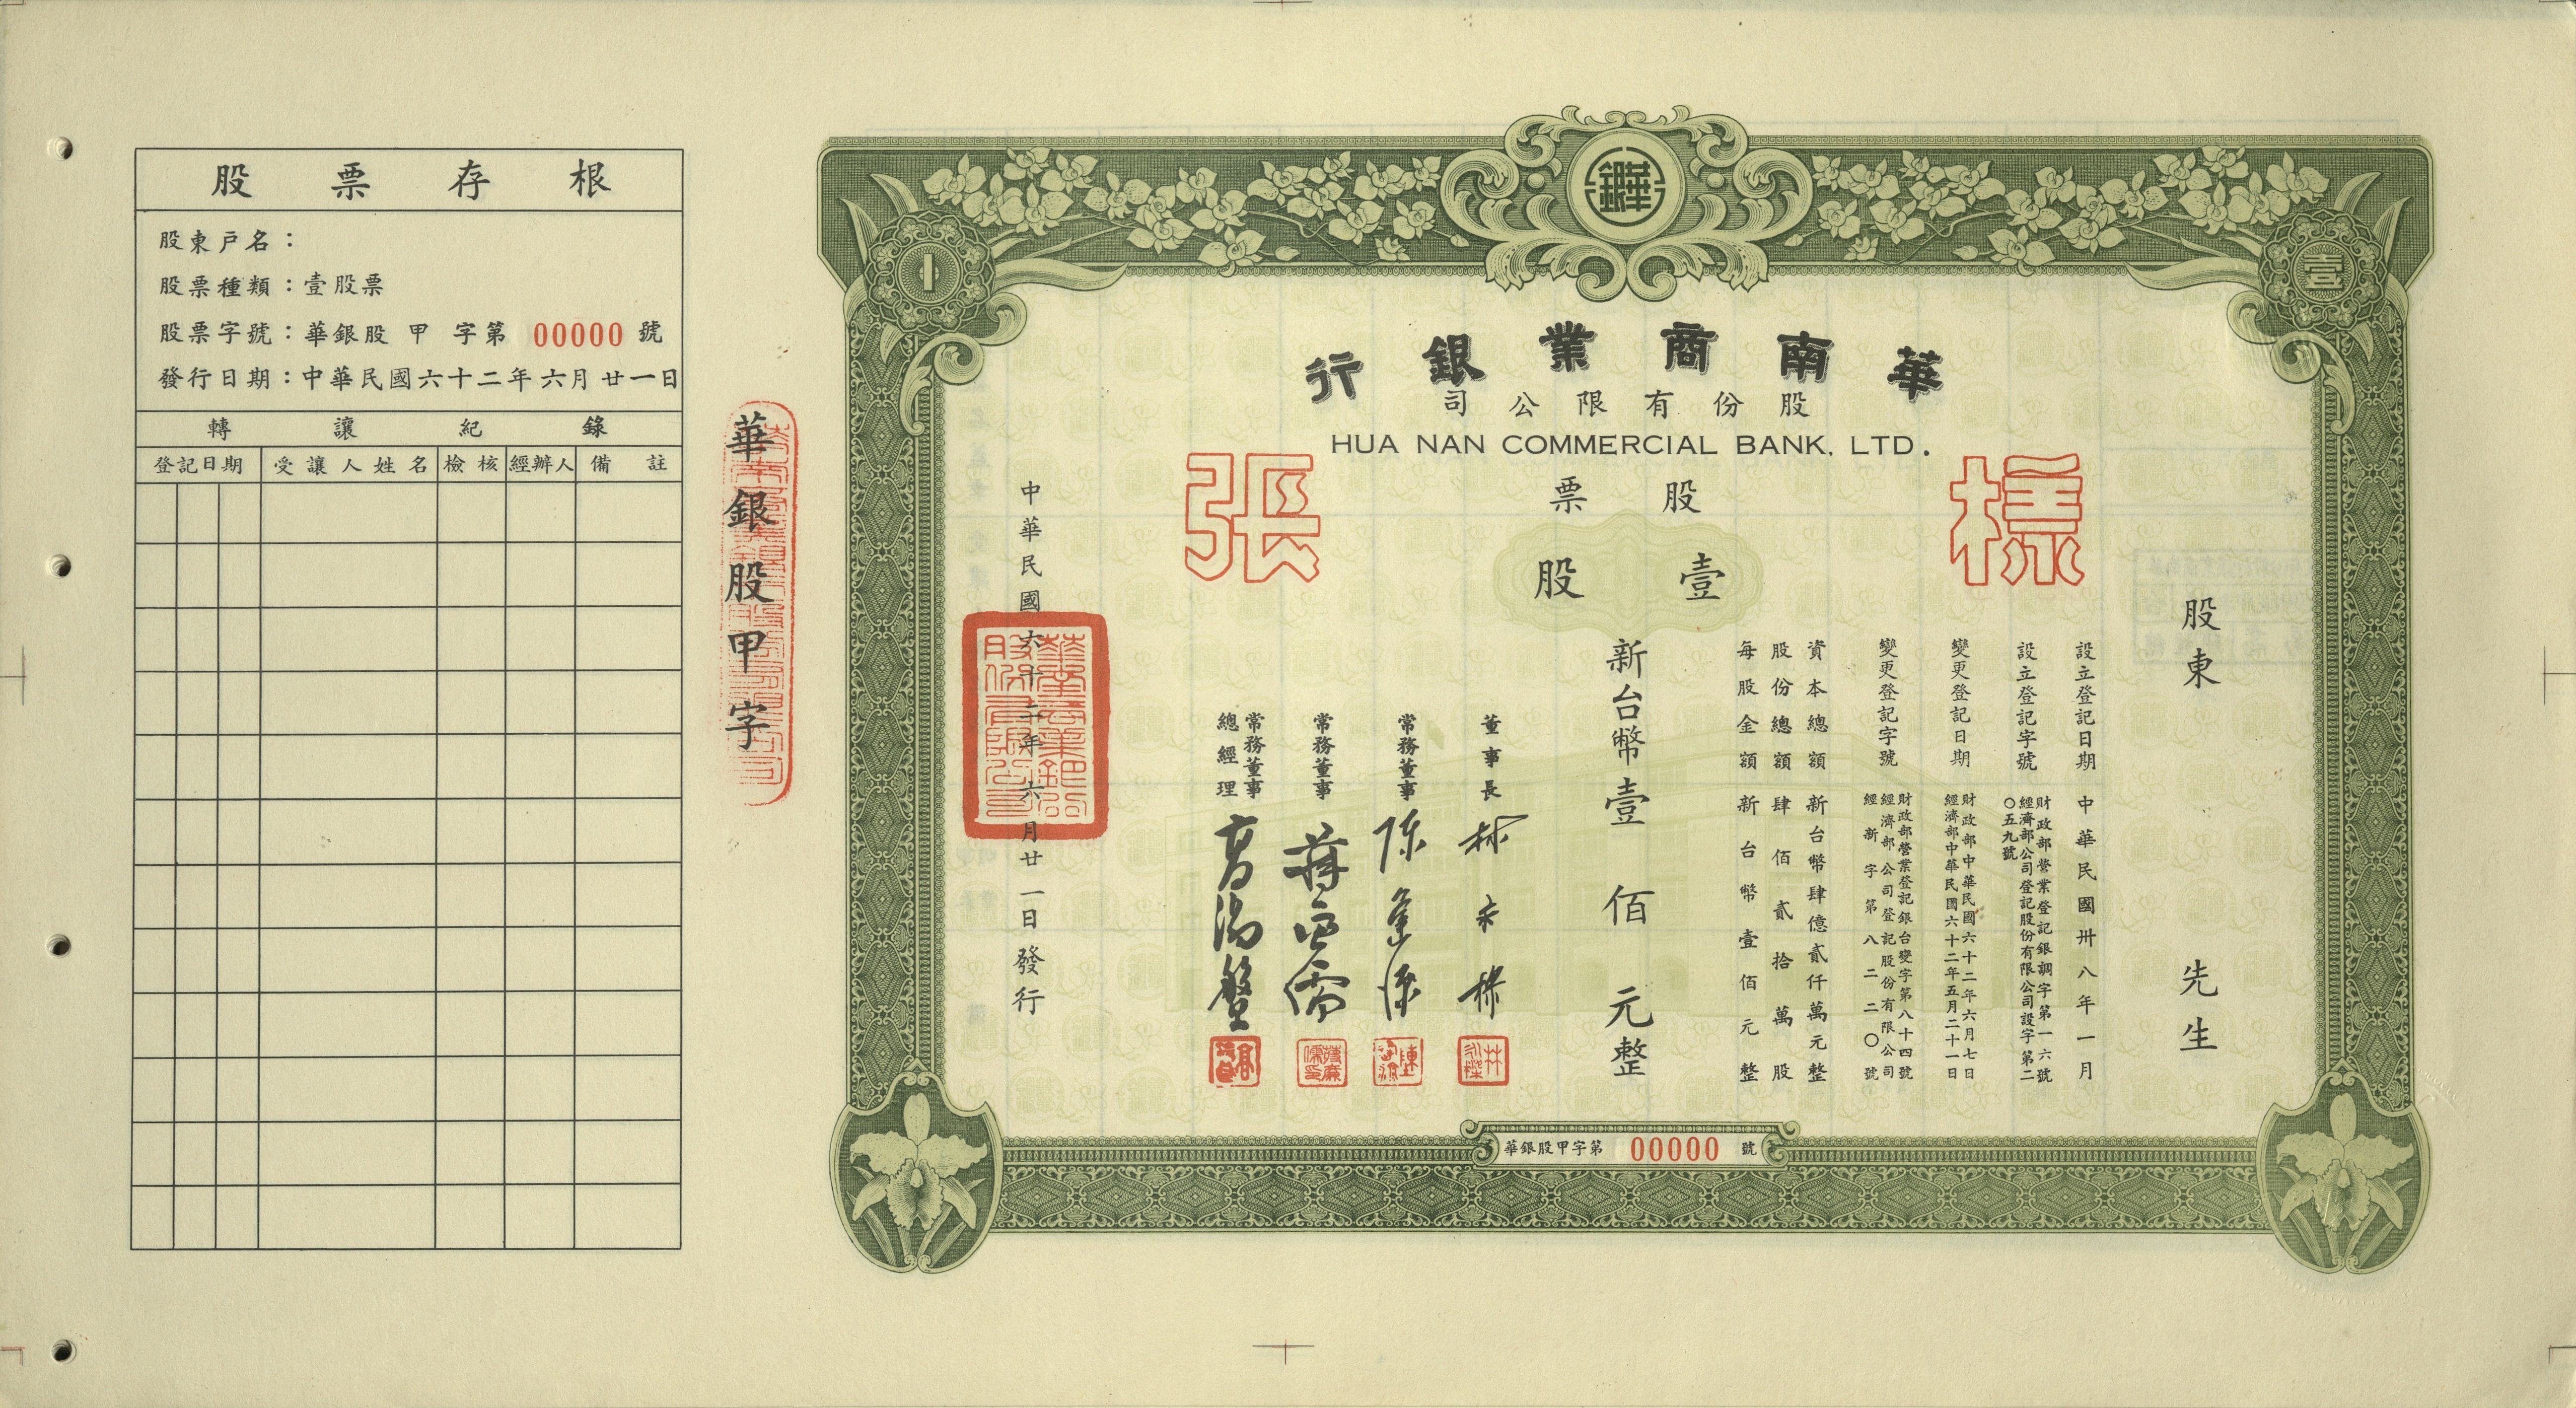 股票存根
股東戶名：
股票種類：壹股票
股票字號：華銀股 甲 字第 00000 號
發行日期：中華民國六十二年六月廿一日
轉讓紀錄
登記日期 受讓人姓名 檢核 經辦人 備註
華銀股甲字
華銀
壹
1
華南商業銀行
股份有限公司
HUA NAN COMMERCIAL BANK, LTD.
樣張
股票
壹股
股東 先生
設立登記日期 中華民國卅八年一月
設立登記字號 財政部營業登記銀調字第一六號
經濟部公司登記股份有限公司設字第二〇五九號
變更登記日期 財政部中華民國六十二年六月七日
經濟部中華民國六十二年五月二十一日
變更登記字號 財政部營業登記銀台變字第八十四號
經濟部公司登記股份有限公司
經新字第八二二〇號
資本總額 新台幣肆億貳仟萬元整
股份總額 肆佰貳拾萬股
每股金額 新台幣壹佰元整
新台幣壹佰元整
董事長
常務董事
常務董事
常務董事
總經理
華南商業銀行股份有限公司
中華民國六十二年六月廿一日發行
華銀股甲字第 00000 號